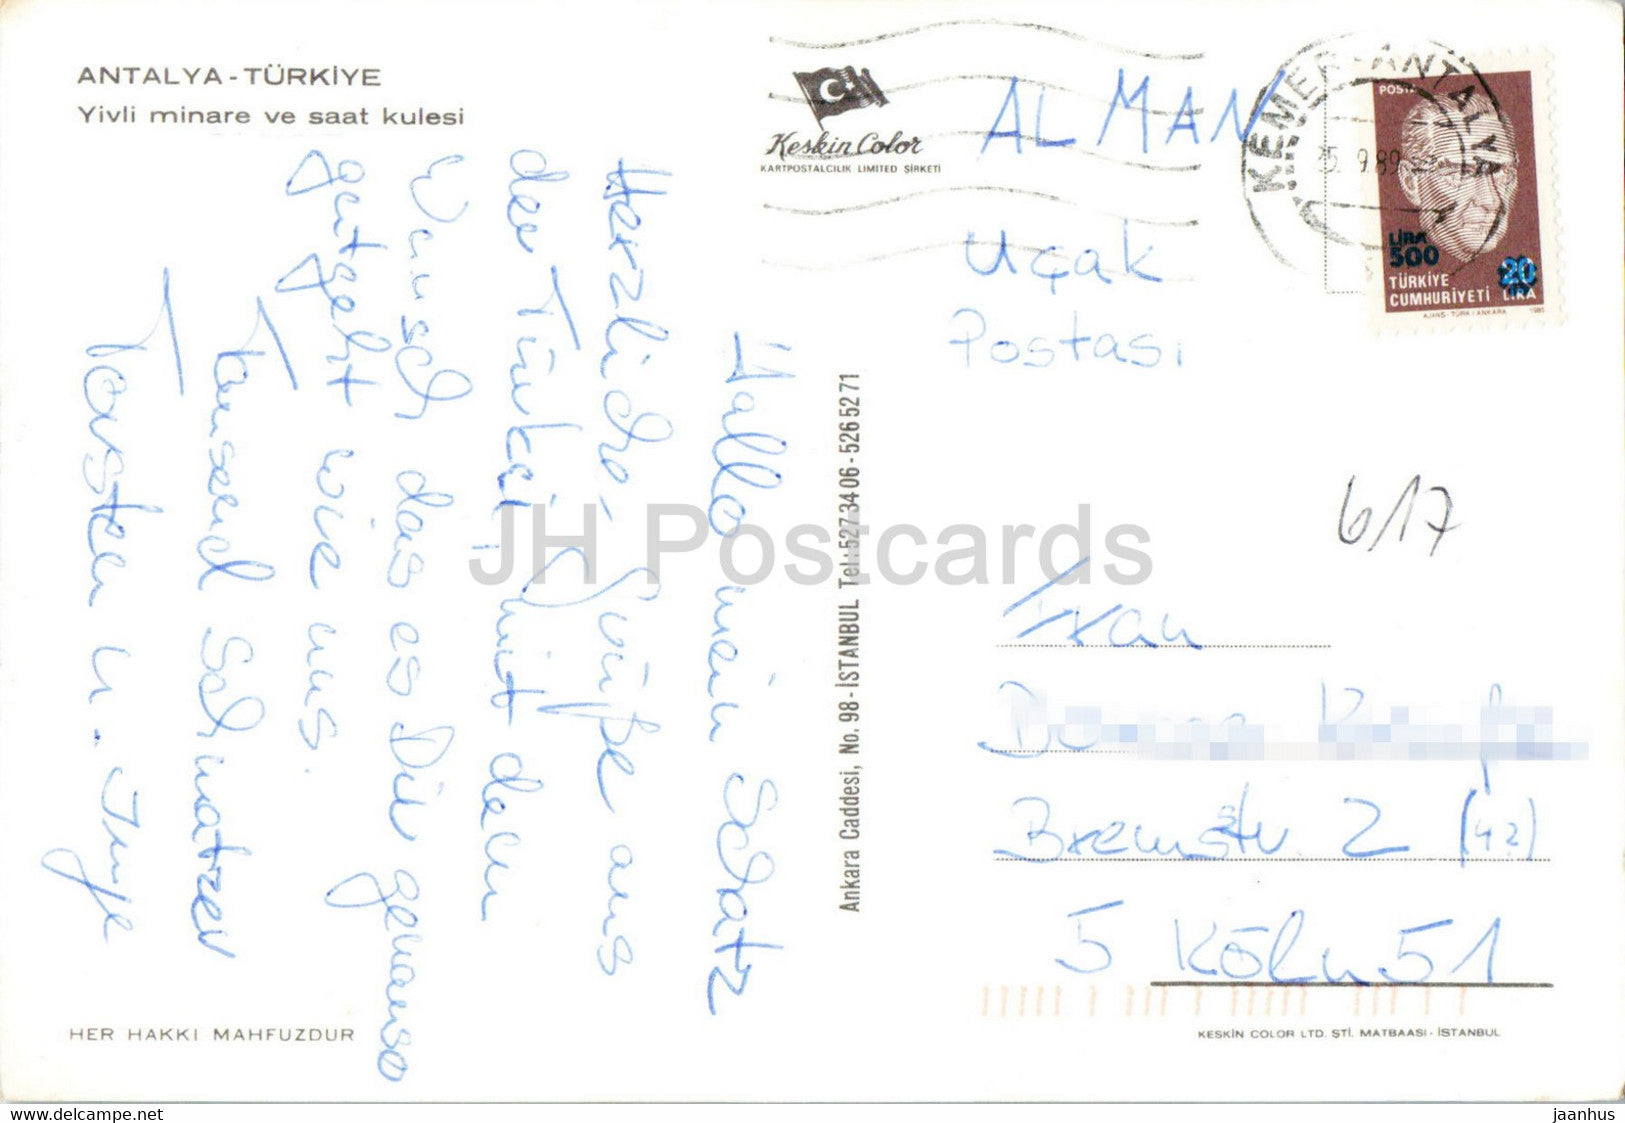 ANTALYA - TÜRKİYE
Yivli minare ve saat kulesi
Hallo mein Schatz
Herzliche Grüße aus
der Türkei, mit dem
Wunsch das es Dir genauso
gut geht wie uns.
Tausend Schmatzer
Torsten u. Inge
HER HAKKI MAHFUZDUR
Keskin Color
KARTPOSTALCILIK LIMITED ŞİRKETİ
Ankara Caddesi, No. 98 - İSTANBUL Tel: 527 34 06 - 526 52 71
ALMAN
Uçak
Postası
KEMER-ANTALYA
9.89
POSTA
LİRA
500
20
LİRA
TÜRKİYE
CUMHURİYETİ
AJANS - TÜRK / ANKARA 1985
617
Frau
Bremstr 2 (42)
5 Köln 51
KESKIN COLOR LTD. ŞTİ. MATBAASI - İSTANBUL
JH Postcards
www.delcampe.net
jaanhus